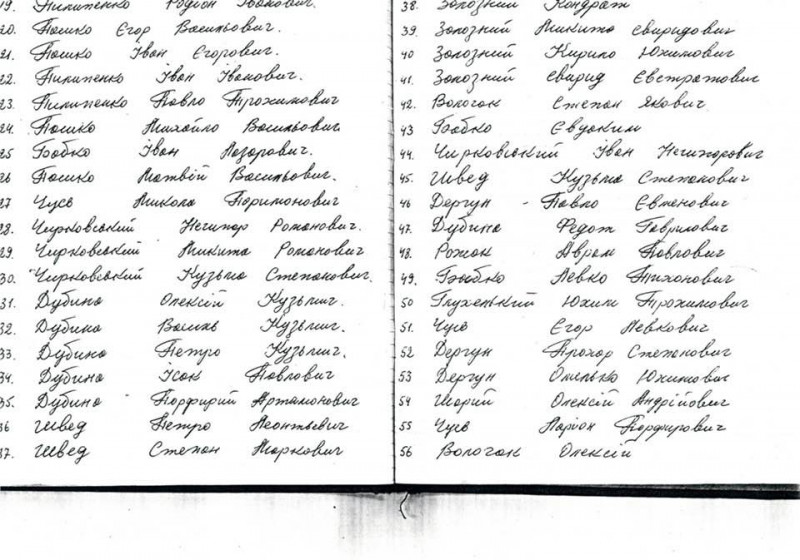 19. Пилипенко Родіон Іванович.
20. Пошко Єгор Васильович.
21. Пошко Іван Єгорович.
22. Пилипенко Іван Іванович.
23. Пилипенко Павло Трохимович
24. Пошко Михайло Васильович
25 Бабко Іван Лазарович.
26 Пошко Матвій Васильович.
27 Чусь Микола Паримонович
28. Чирковський Нечипор Романович.
29. Чирковський Микита Романович
30. Чирковський Кузьма Степанович.
31. Дубина Олексій Кузьмич.
32. Дубина Василь Кузьмич.
33. Дубина Петро Кузьмич.
34. Дубина Ісак Павлович
35. Дубина Порфирій Артамонович
36 Швед Петро Леонтьевич
37. Швед Степан Маркович
38. Залозний Кондрат
39. Залозний Микита Свиридович
40 Залозний Кирило Юхимович
41. Залозний Свирид Євстратович
42. Вологок Степан Якович.
43 Бабко Євдоким
44. Чирковський Іван Нечипорович
45. Швед Кузьма Степанович
46 Дергун - Павло Євменович
47. Дубина Федот Гаврилович
48. Рожок Аврам Павлович
49. Бабко Левко Тихонович
50 Глухенький Юхим Трохимович
51. Чусь Єгор Левкович
52 Дергун Прохор Степанович
53 Дергун Омелько Юхимович
54 Шарий Олексій Андрійович
55 Чусь Ларіон Порфирович
56 Вологок Олексій